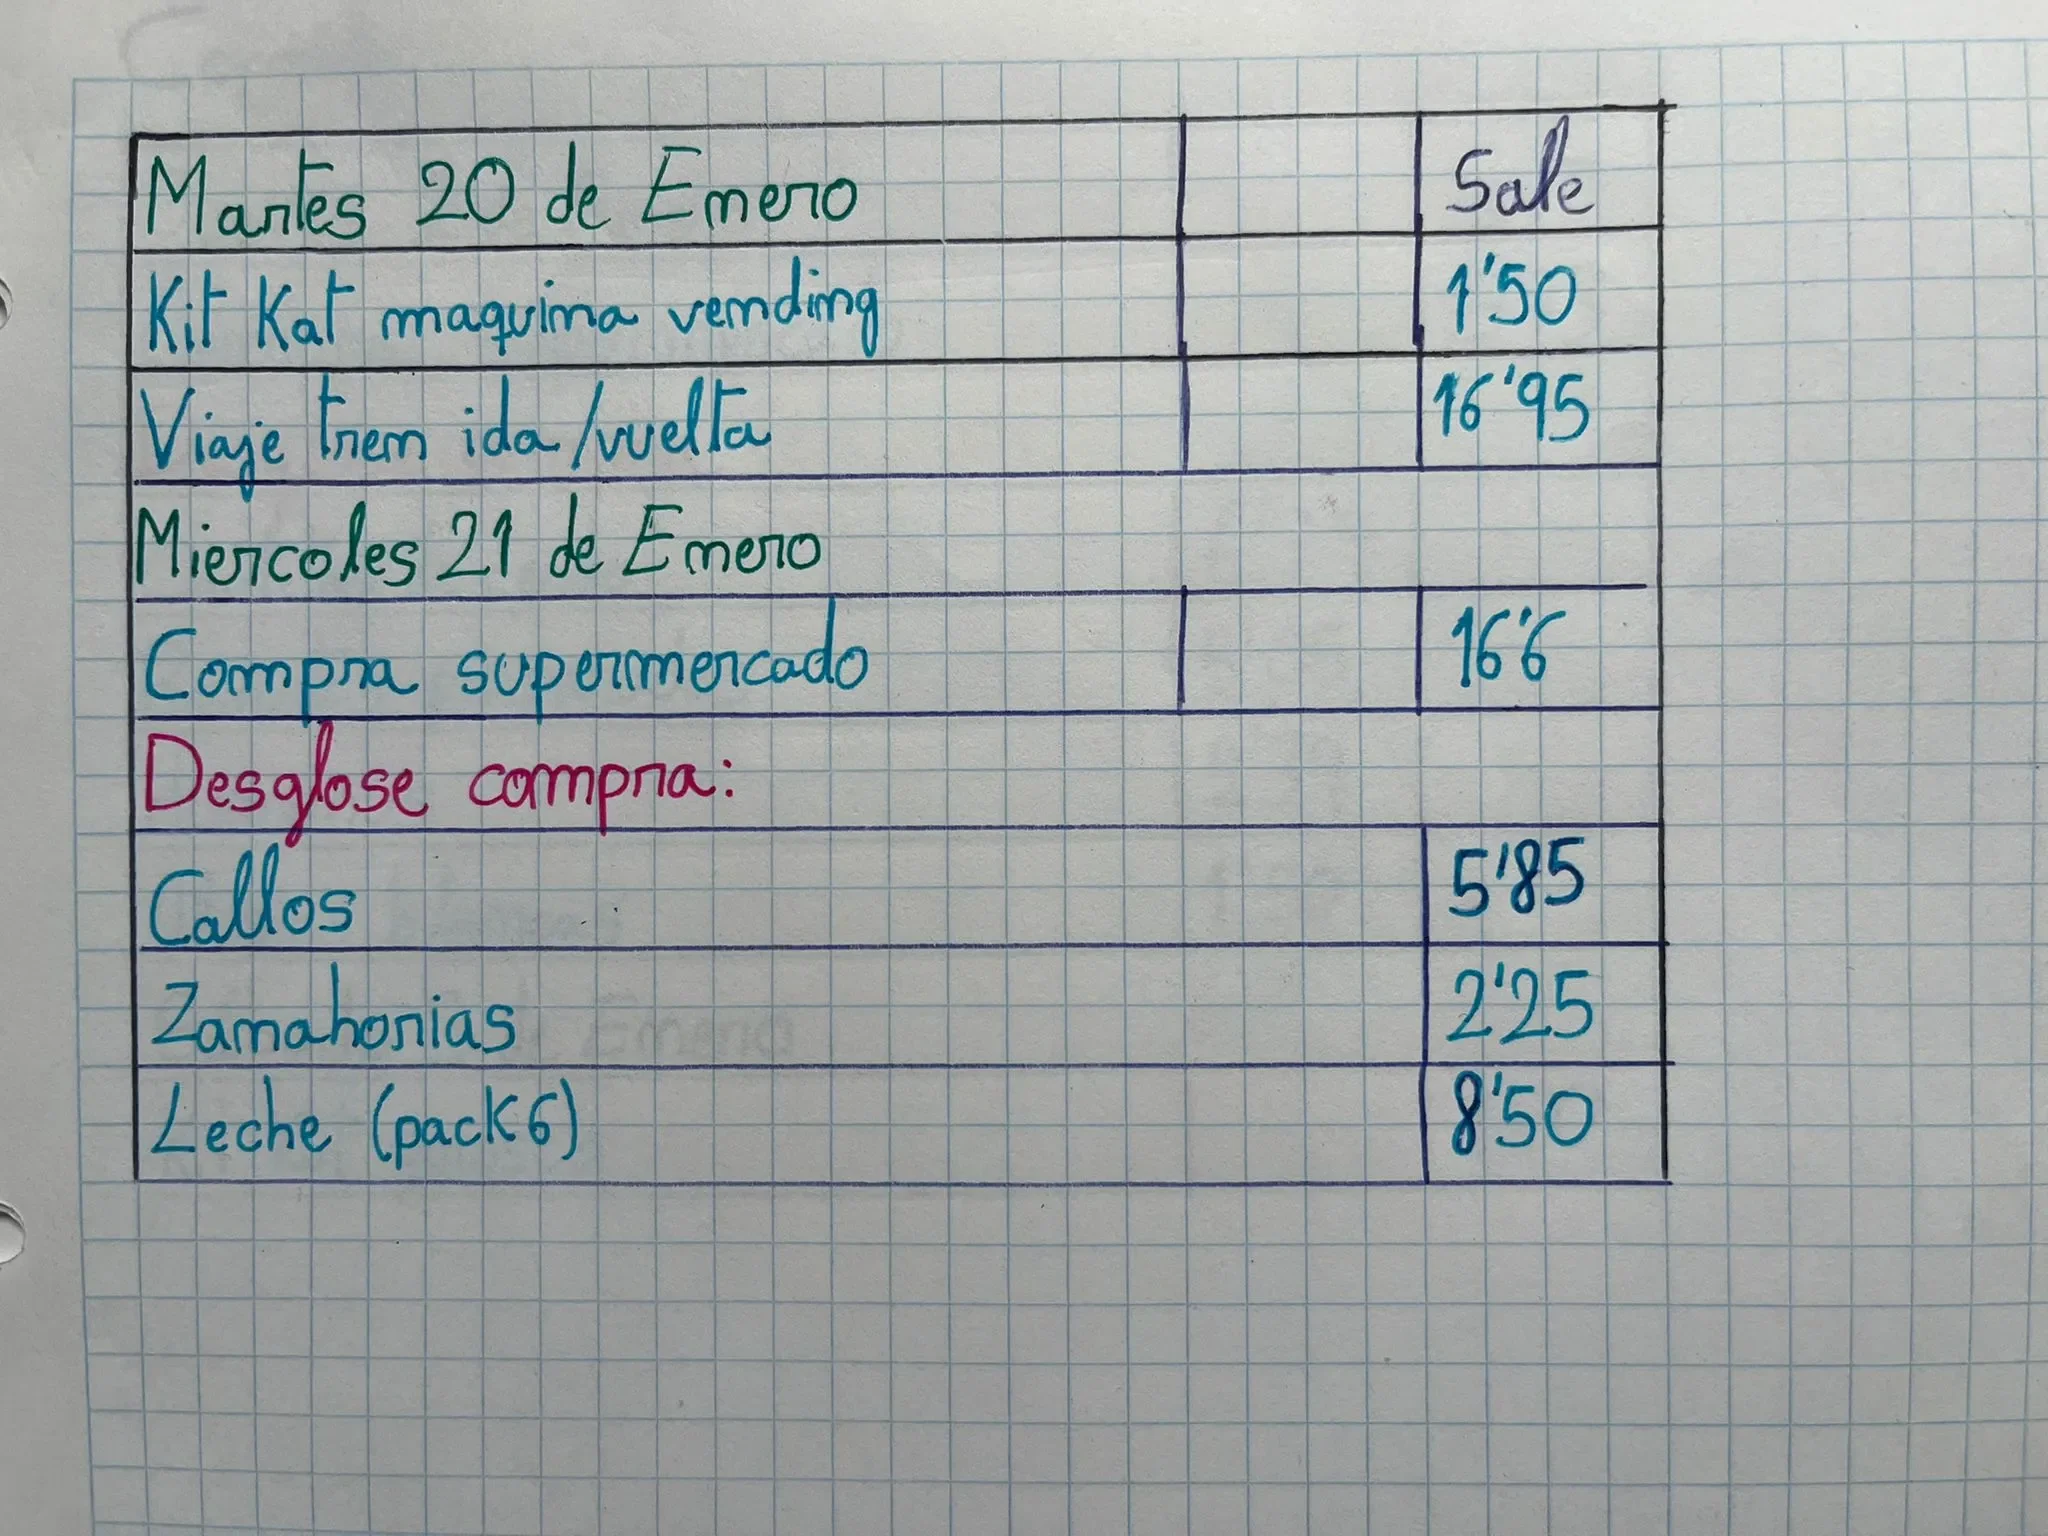 Martes 20 de Enero Sale
Kit Kat maquina vending 1'50
Viaje tren ida/vuelta 16'95
Miercoles 21 de Enero
Compra supermercado 16'6
Desglose compra:
Callos 5'85
Zanahorias 2'25
Leche (pack 6) 8'50